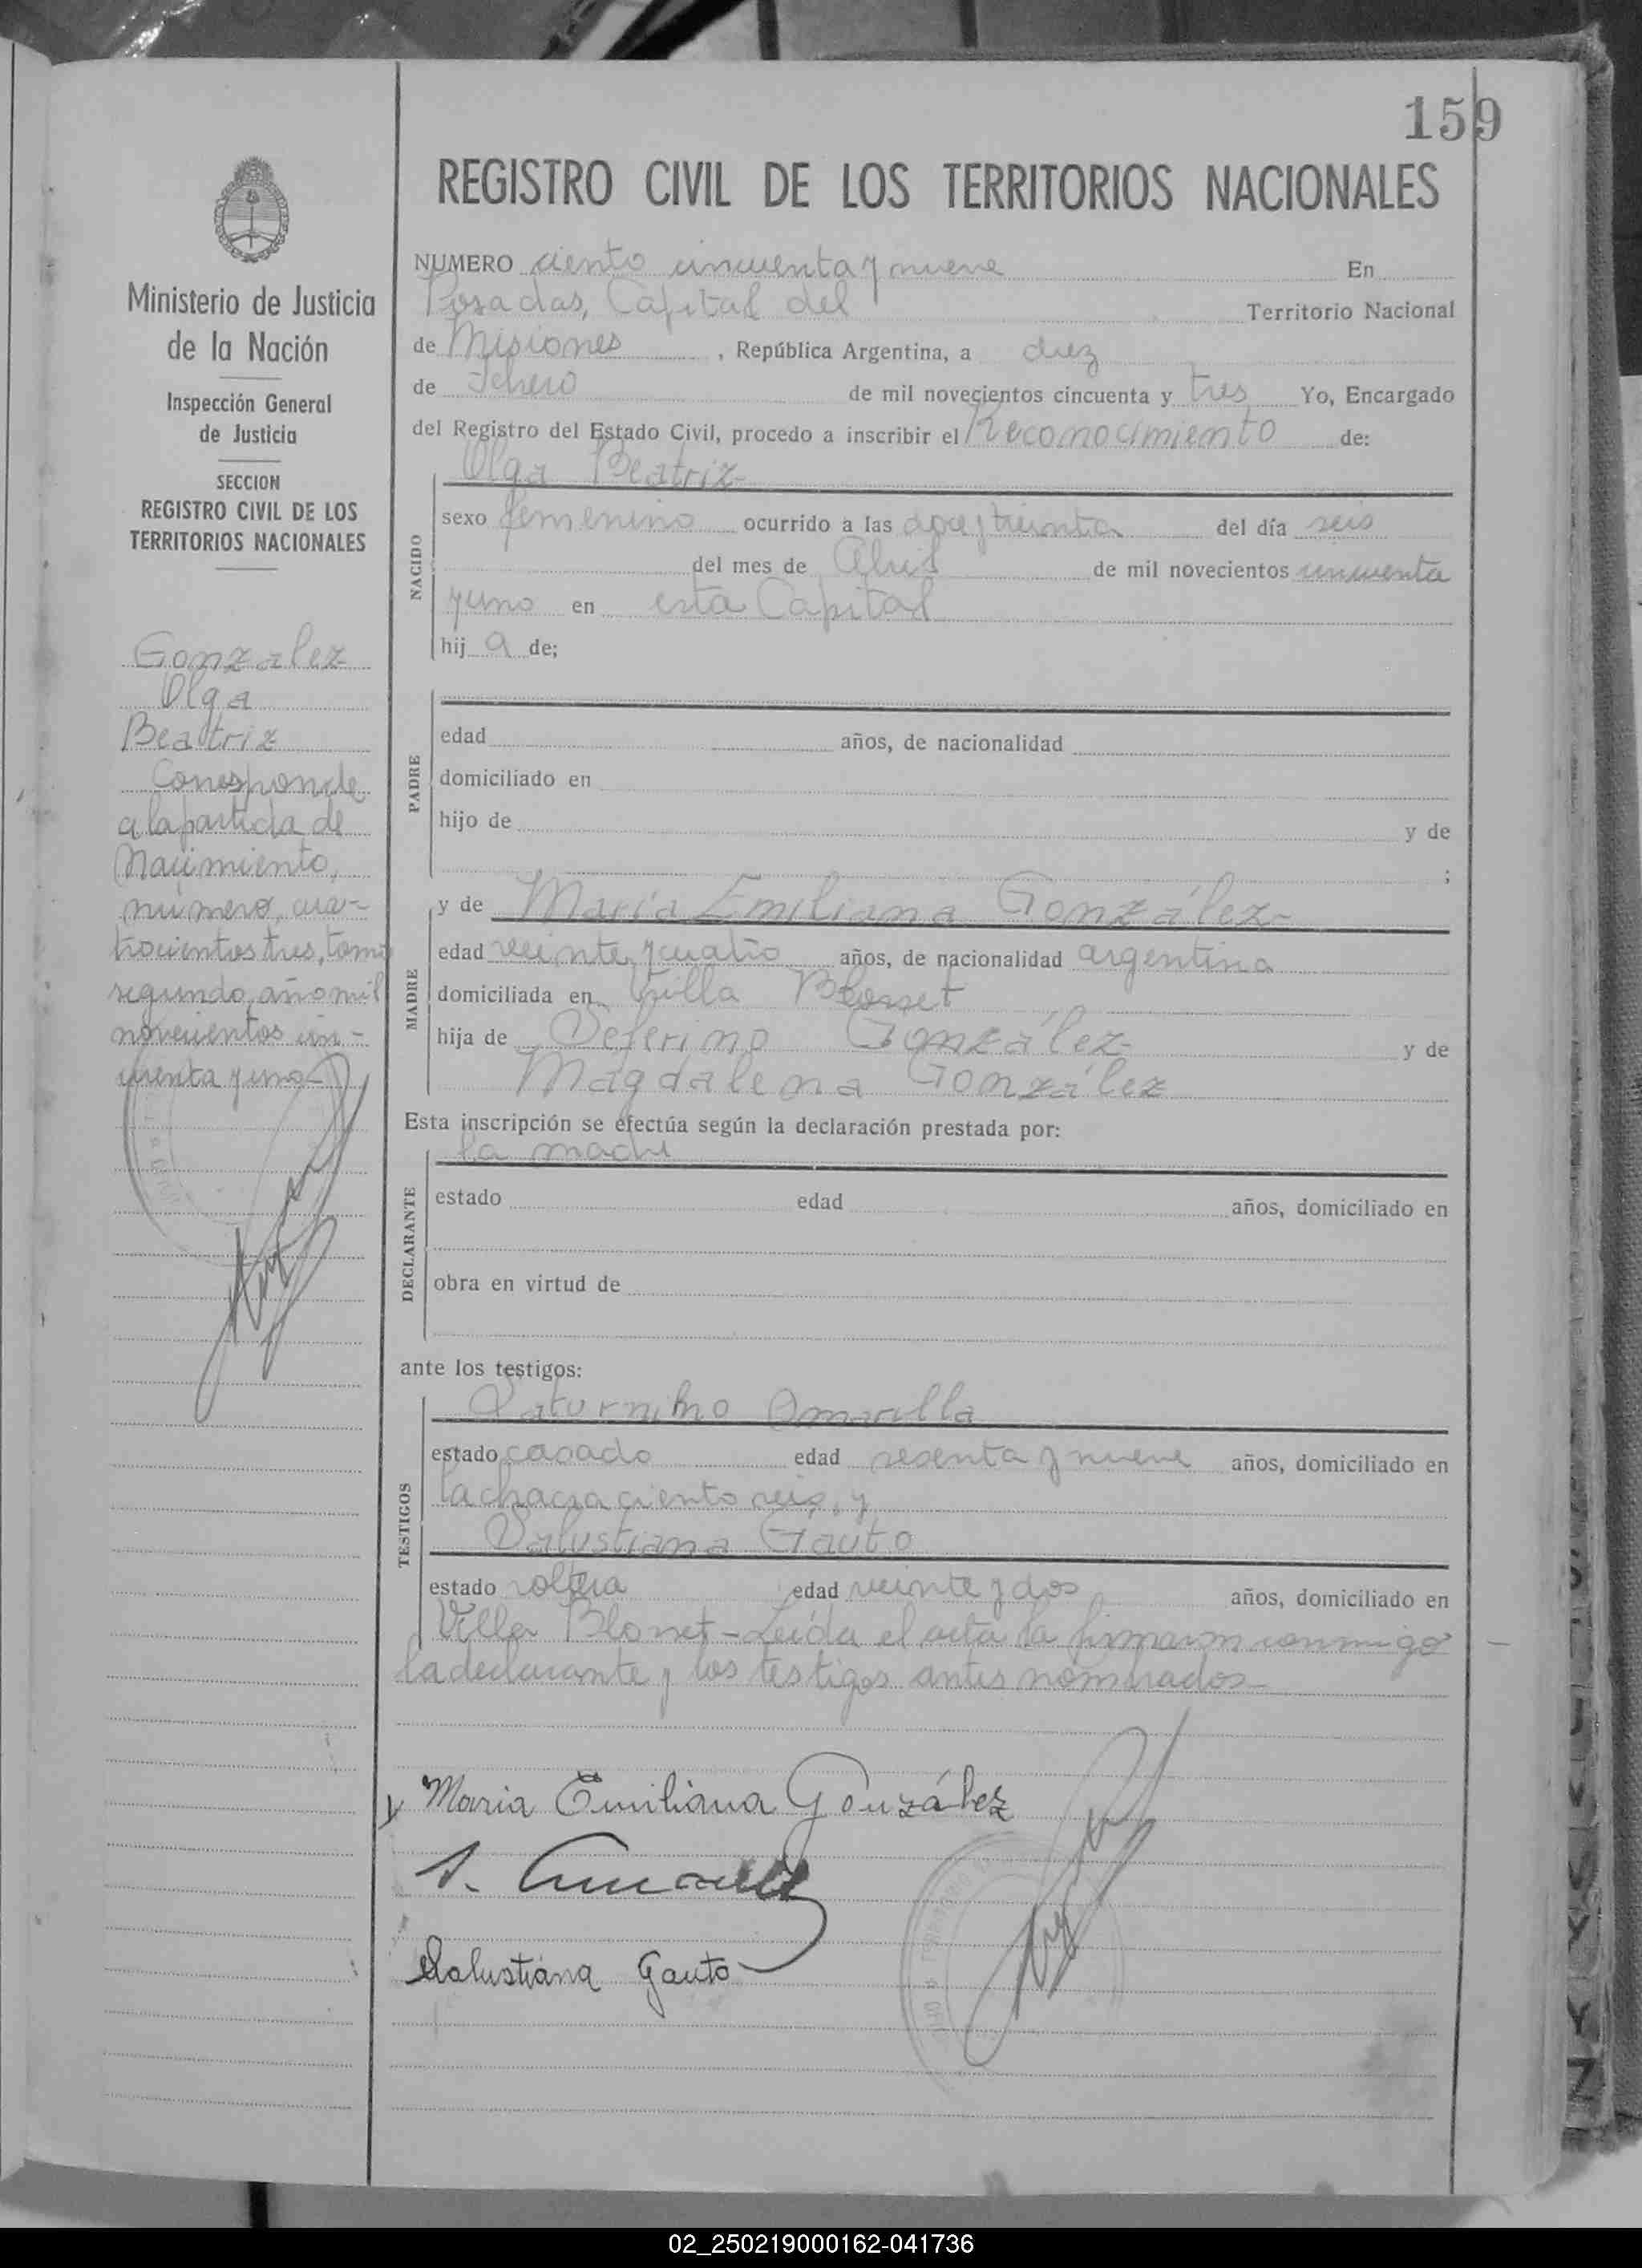 159
REGISTRO CIVIL DE LOS TERRITORIOS NACIONALES
Ministerio de Justicia
de la Nación
Inspección General
de Justicia
SECCION
REGISTRO CIVIL DE LOS
TERRITORIOS NACIONALES
Gonzalez
Olga
Beatriz
Corresponde
a la partida de
Nacimiento,
número, cua-
trocientos tres, tomo
segundo, año mil
novecientos cin-
cuenta y uno-
NUMERO ciento cincuenta y nueve En
Posadas, Capital del Territorio Nacional
de Misiones , República Argentina, a diez
de Febrero de mil novecientos cincuenta y tres Yo, Encargado
del Registro del Estado Civil, procedo a inscribir el Reconocimiento de:
Olga Beatriz-
NACIDO
sexo femenino ocurrido a las doce y treinta del día seis
del mes de Abril de mil novecientos cincuenta
y uno en esta Capital
hij a de;
PADRE
edad años, de nacionalidad
domiciliado en
hijo de y de
;
MADRE
y de María Emiliana González-
edad veinte y cuatro años, de nacionalidad argentina
domiciliada en Villa Blosset
hija de Seferino González- y de
Magdalena González
Esta inscripción se efectúa según la declaración prestada por:
la madre
DECLARANTE
estado edad años, domiciliado en
obra en virtud de
ante los testigos:
TESTIGOS
Saturnino Amarilla
estado casado edad sesenta y nueve años, domiciliado en
la chacra ciento seis, y
Salustiana Gauto
estado soltera edad veinte y dos años, domiciliado en
Villa Blosset - Leída el acta la firmaron conmigo
la declarante y los testigos antes nombrados-
Maria Emiliana González
S. Amarilla
Salustiana Gauto
02_250219000162-041736